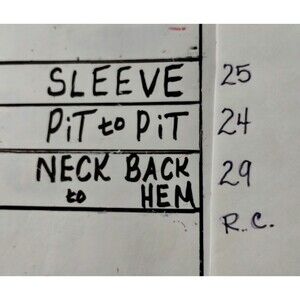 SLEEVE 25
PiT to PiT 24
NECK BACK 29
to HEM
R.C.